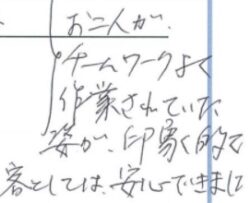 お二人が、
チームワークよく
作業されていた
姿が、印象的で
客としては、安心できました